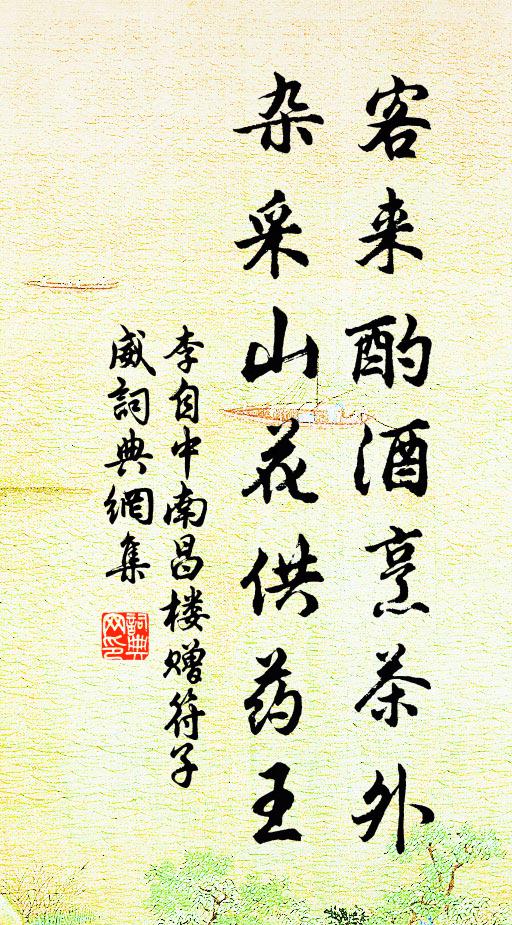 客来酌酒烹茶外
杂采山花供药王
李自中南昌楼赠符子
威詞典網集
詞典
网印